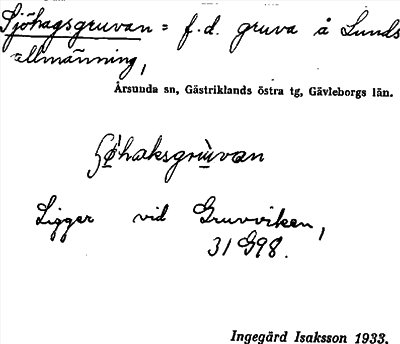 Sjöhagsgruvan = f.d. gruva å Lunds
allmänning,
Årsunda sn, Gästriklands östra tg, Gävleborgs län.
Ligger vid Gruvviken,
31 G98.
Ingegärd Isaksson 1933.